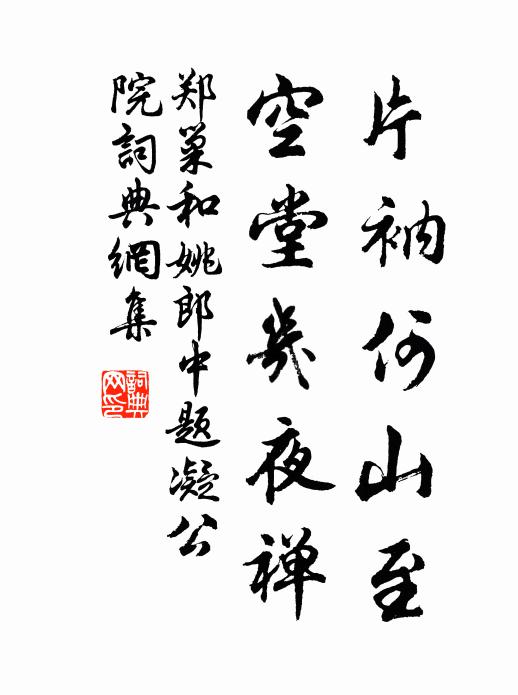 片衲何山至
空堂幾夜禅
郑巢和姚郎中题凝公
院詞典網集
詞典网印